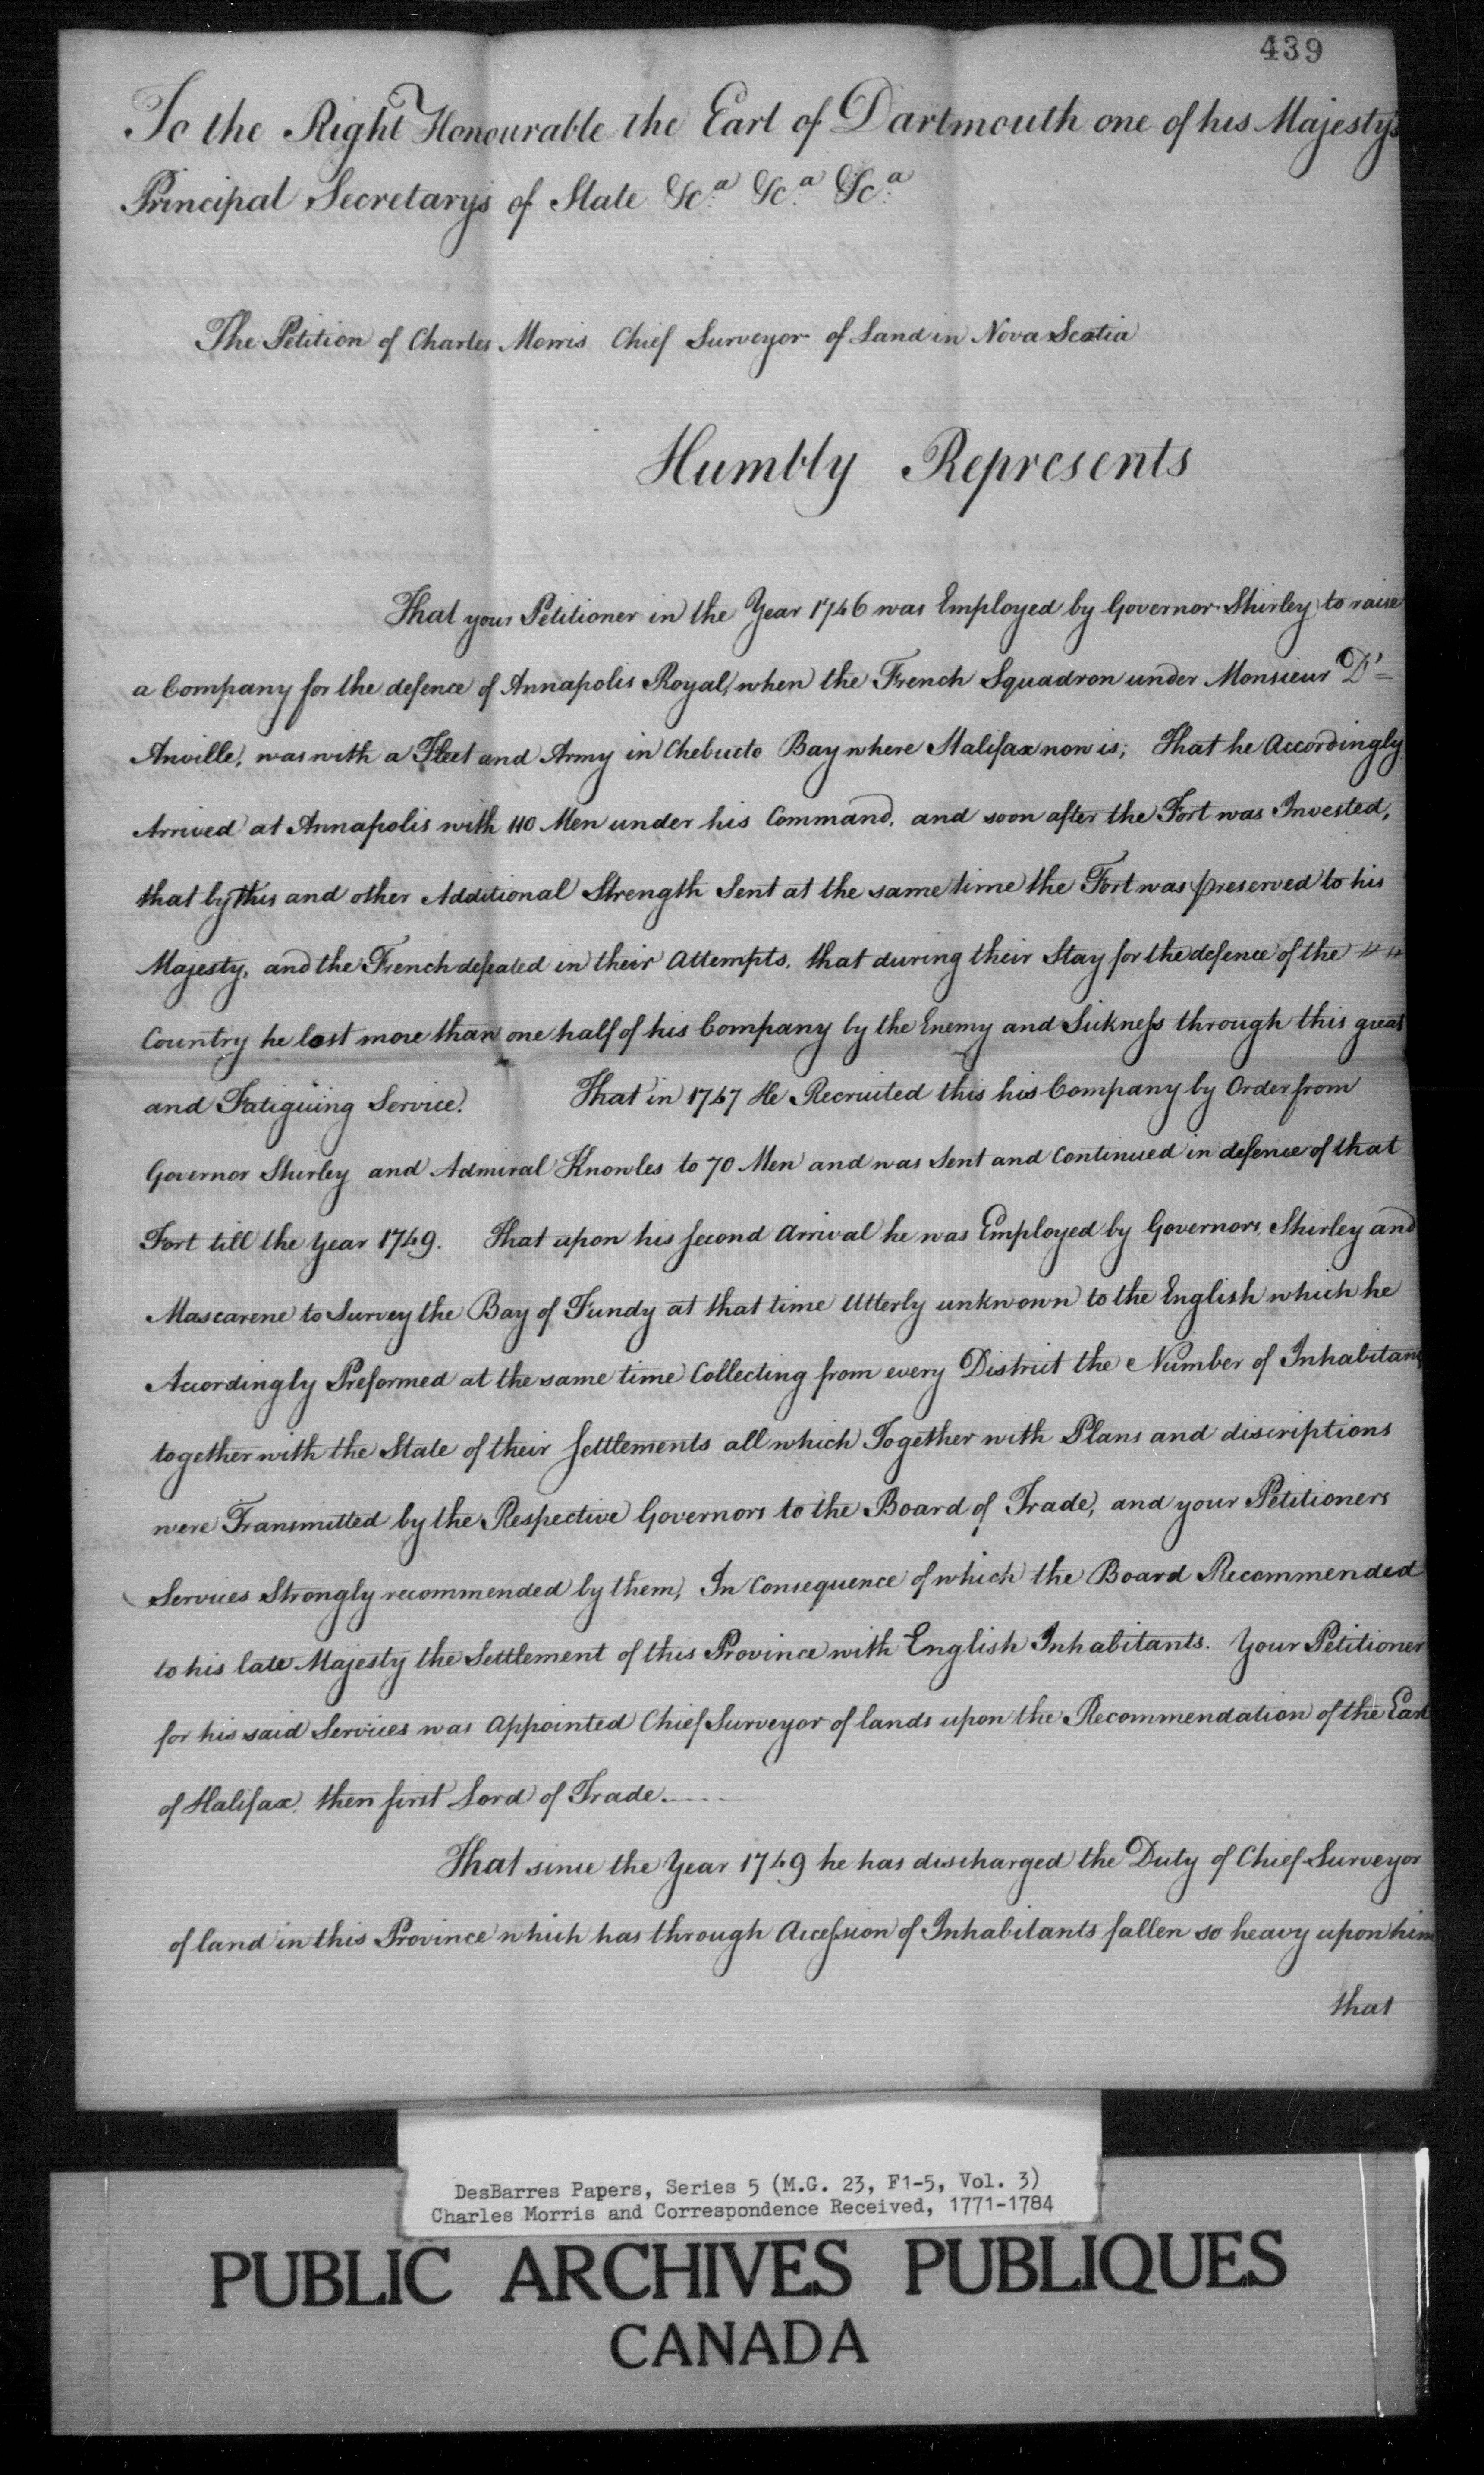 439
To the Right Honourable the Earl of Dartmouth one of his Majesty's
Principal Secretary's of State &c.a &c.a &c.a
The Petition of Charles Morris Chief Surveyor of Land in Nova Scotia
Humbly Represents
That your Petitioner in the Year 1746 was Employed by Governor Shirley to raise
a Company for the defence of Annapolis Royal, when the French Squadron under Monsieur D'=
Anville, was with a Fleet and Army in Chebucto Bay where Halifax now is; That he Accordingly
Arrived at Annapolis with 110 Men under his Command, and soon after the Fort was Invested,
that by this and other Additional Strength Sent at the same time the Fort was preserved to his
Majesty, and the French defeated in their Attempts. that during their Stay for the defence of the
Country he lost more than one half of his Company by the Enemy and Sickneſs through this great
and Fatiguing Service. That in 1747 He Recruited this his Company by Order from
Governor Shirley and Admiral Knowles to 70 Men and was Sent and Continued in defence of that
Fort till the Year 1749. That upon his second Arrival he was Employed by Governors, Shirley and
Mascarene to Survey the Bay of Fundy at that time Utterly unknown to the English which he
Accordingly Preformed at the same time Collecting from every District the Number of Inhabitants
together with the State of their Settlements all which Together with Plans and discriptions
were Transmitted by the Respective Governors to the Board of Trade, and your Petitioners
Services Strongly recommended by them, In Consequence of which the Board Recommended
to his late Majesty the Settlement of this Province with English Inhabitants. Your Petitioner
for his said Services was Appointed Chief Surveyor of lands upon the Recommendation of the Earl
of Halifax, then first Lord of Trade.
That since the Year 1749 he has discharged the Duty of Chief Surveyor
of land in this Province which has through Acceſsion of Inhabitants fallen so heavy upon him
that
DesBarres Papers, Series 5 (M.G. 23, F1-5, Vol. 3)
Charles Morris and Correspondence Received, 1771-1784
PUBLIC ARCHIVES PUBLIQUES
CANADA